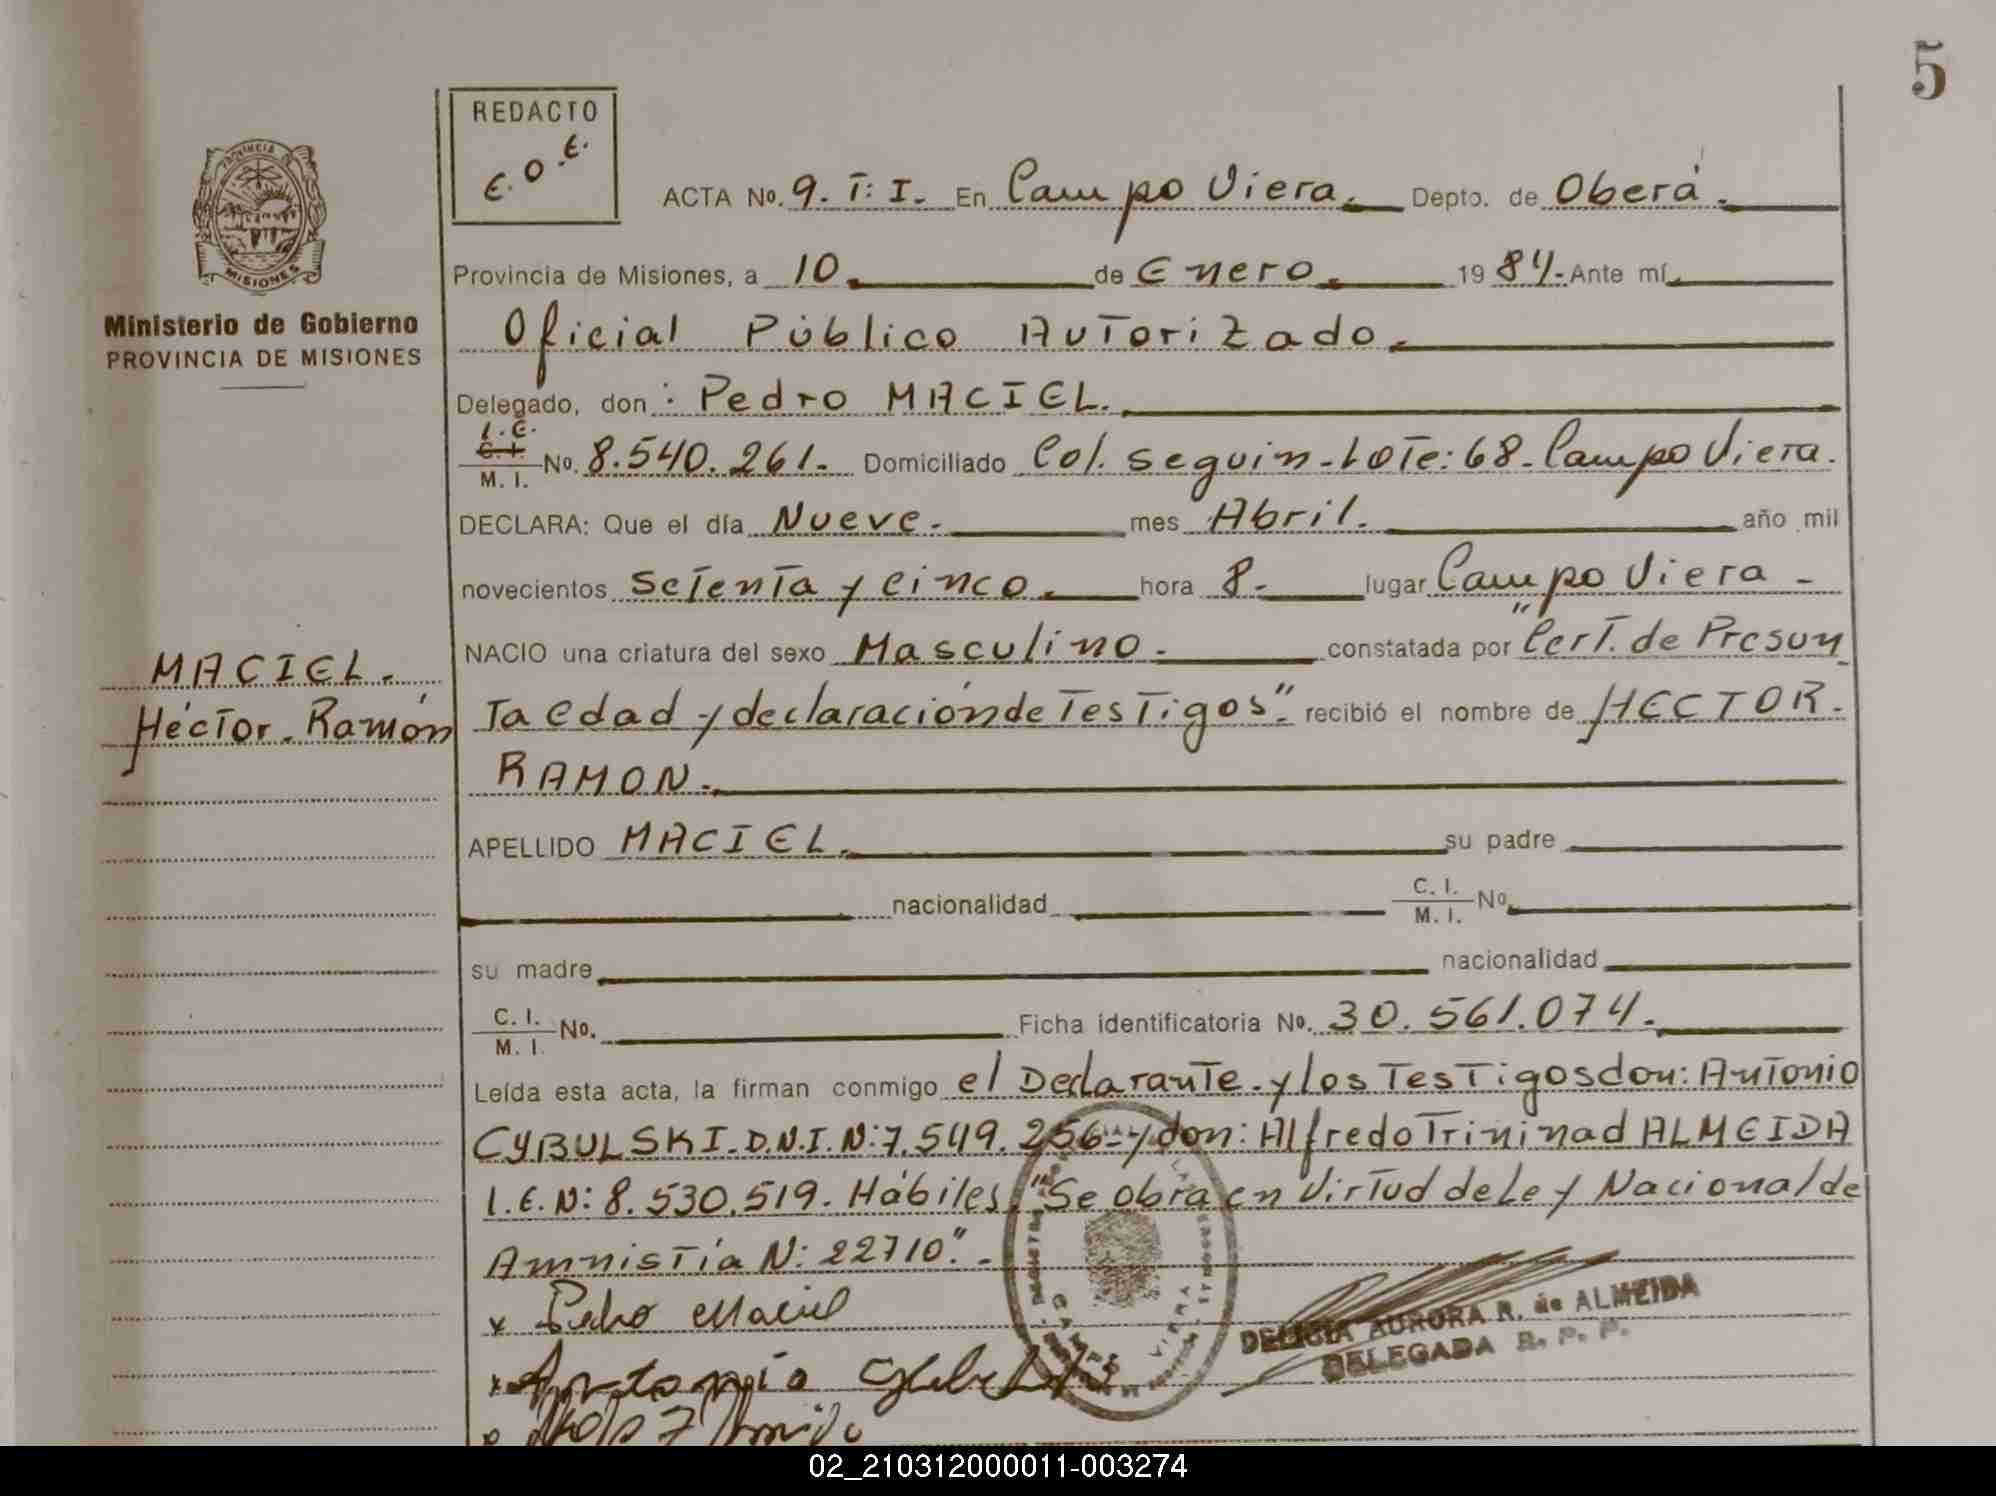 5
REDACTO
E.O.E.
PROVINCIA DE
MISIONES
Ministerio de Gobierno
PROVINCIA DE MISIONES
ACTA No. 9. T: I. En Campo Viera. Depto. de Oberá.
Provincia de Misiones, a 10. de Enero. 1984. Ante mí
Oficial Público Autorizado.
Delegado, don: Pedro MACIEL.
L.E.
C.I.
M.I. No. 8.540.261. Domiciliado Col. Seguin-Lote: 68-Campo Viera.
DECLARA: Que el día Nueve. mes Abril. año mil
novecientos Setenta y Cinco. hora 8- lugar Campo Viera-
NACIO una criatura del sexo Masculino. constatada por "Cert. de Presun
ta edad y declaración de Testigos". recibió el nombre de HECTOR.
RAMON.
MACIEL.
Héctor. Ramón
APELLIDO MACIEL. su padre
nacionalidad C.I. M.I. No.
su madre nacionalidad
C.I. M.I. No. Ficha identificatoria No. 30.561.074.
Leída esta acta, la firman conmigo el Declarante. y los Testigos don: Antonio
CYBULSKI. D.N.I. N: 7.549.256-y don: Alfredo Trininad ALMEIDA
L.E.N: 8.530.519. Hábiles. "Se obra en Virtud de Ley Nacional de
Amnistía N: 22710".-
x Pedro Maciel
x Antonio
DELICIA AURORA R. de ALMEIDA
DELEGADA R. P. P.
CAMPO VIERA
02_210312000011-003274